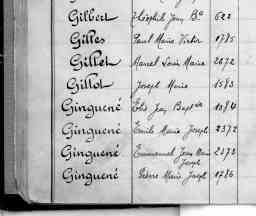 Gilbert Théophile Jean Bte 622
Gilles Paul Marie Victor 1785
Gillet Marcel Louis Marie 2072
Gillot Joseph Marie 1583
Ginguené Jean Baptiste
Ginguené Emile Marie Joseph 2372
Ginguené Emmanuel Jean Marie 2373
Joseph
Ginguené Pierre Marie Joseph 1786